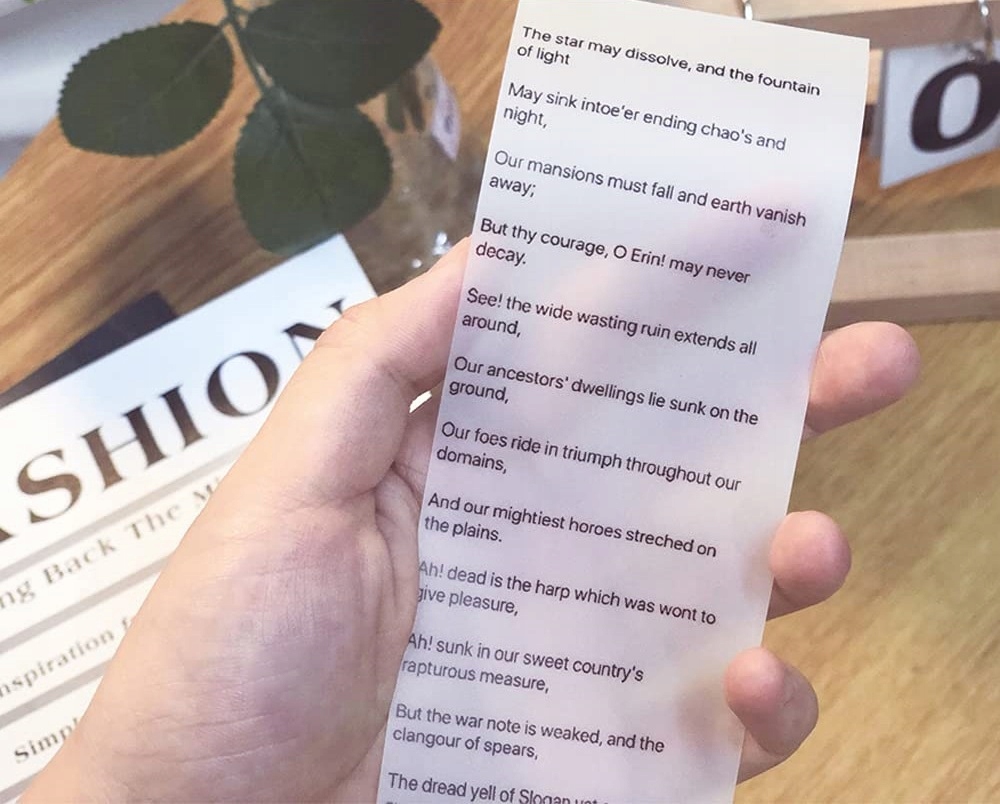 The star may dissolve, and the fountain
of light
May sink intoe'er ending chao's and
night,
Our mansions must fall and earth vanish
away;
But thy courage, O Erin! may never
decay.
See! the wide wasting ruin extends all
around,
Our ancestors' dwellings lie sunk on the
ground,
Our foes ride in triumph throughout our
domains,
And our mightiest horoes streched on
the plains.
Ah! dead is the harp which was wont to
give pleasure,
Ah! sunk in our sweet country's
rapturous measure,
But the war note is weaked, and the
clangour of spears,
The dread yell of Slogan yet
ASHION
ng Back The M
nspiration f
Simpl
O